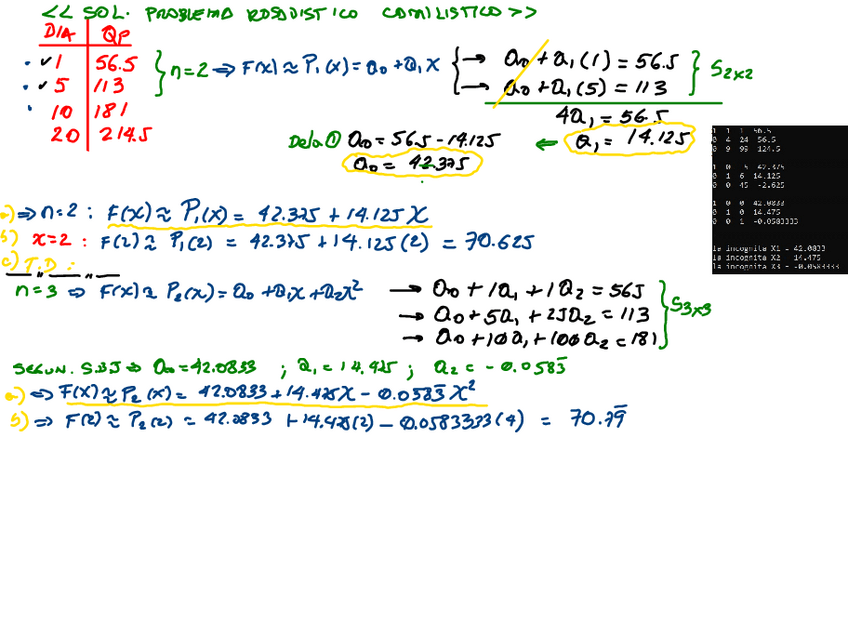 << SOL. PROBLEMA ROSADISTICO CAMILISTICO >>
DIA QP
1 56.5
5 113
10 181
20 214.5
} n=2 ⇒ F(x) ≈ P₁(x) = a₀ + a₁x
→ a₀ + a₁(1) = 56.5
→ a₀ + a₁(5) = 113
} S2x2
4a₁ = 56.5
⇐ a₁ = 14.125
De la ① a₀ = 56.5 - 14.125
a₀ = 42.375
a) ⇒ n=2 : F(x) ≈ P₁(x) = 42.375 + 14.125x
b) x=2 : F(2) ≈ P₁(2) = 42.375 + 14.125(2) = 70.625
c) T.D :
n=3 ⇒ F(x) ≈ P₂(x) = a₀ + a₁x + a₂x²
→ a₀ + 1a₁ + 1a₂ = 56.5
→ a₀ + 5a₁ + 25a₂ = 113
→ a₀ + 10a₁ + 100a₂ = 181
} S3x3
⇒ a₀ = 42.0833 ; a₁ = 14.475 ; a₂ = -0.0583
a) ⇒ F(x) ≈ P₂(x) = 42.0833 + 14.475x - 0.0583x²
b) ⇒ F(2) ≈ P₂(2) = 42.0833 + 14.475(2) - 0.0583333(4) = 70.79
1 1 1 56.5
0 4 24 56.5
0 9 99 124.5
1 0 -5 42.375
0 1 6 14.125
0 0 45 -2.625
1 0 0 42.0833
0 1 0 14.475
0 0 1 -0.0583333
la incognita X1 = 42.0833
la incognita X2 = 14.475
la incognita X3 = -0.0583333